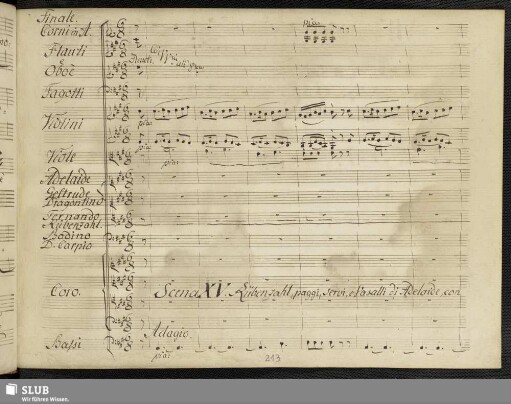 Finale.
Corni in A.
Flauti
e
Oboe
Fagotti
Violini
Viole
Adelaide
Geltrude
Dragontino
Fernando
Rübenzahl.
Bodino
D. Carpio
Coro.
Bassi
Flauti
pizz.
Scena XV. Rübenzahl, paggi, servi, e Vasalli di Adelaide, con
Adagio
213
SLUB
Wir führen Wissen.